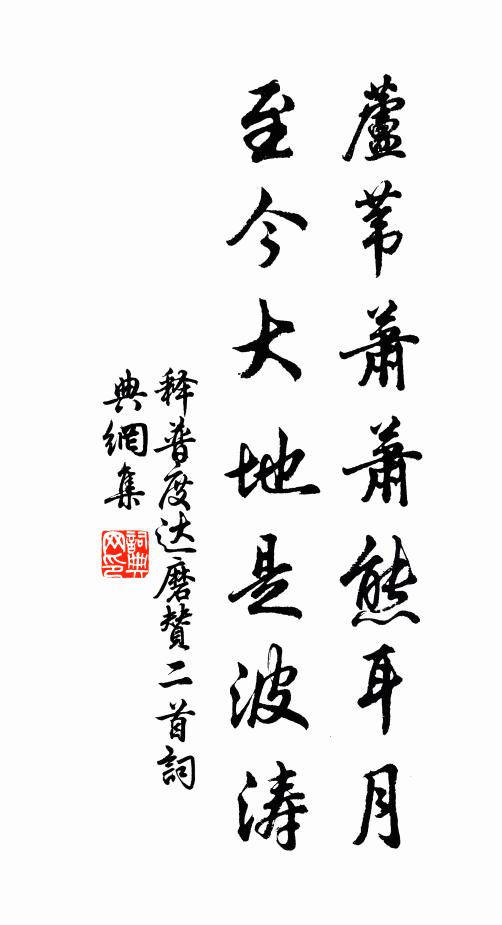 蘆葦蕭蕭熊耳月
至今大地是波涛
释普度达磨賛二首詞
典網集
詞典
网印